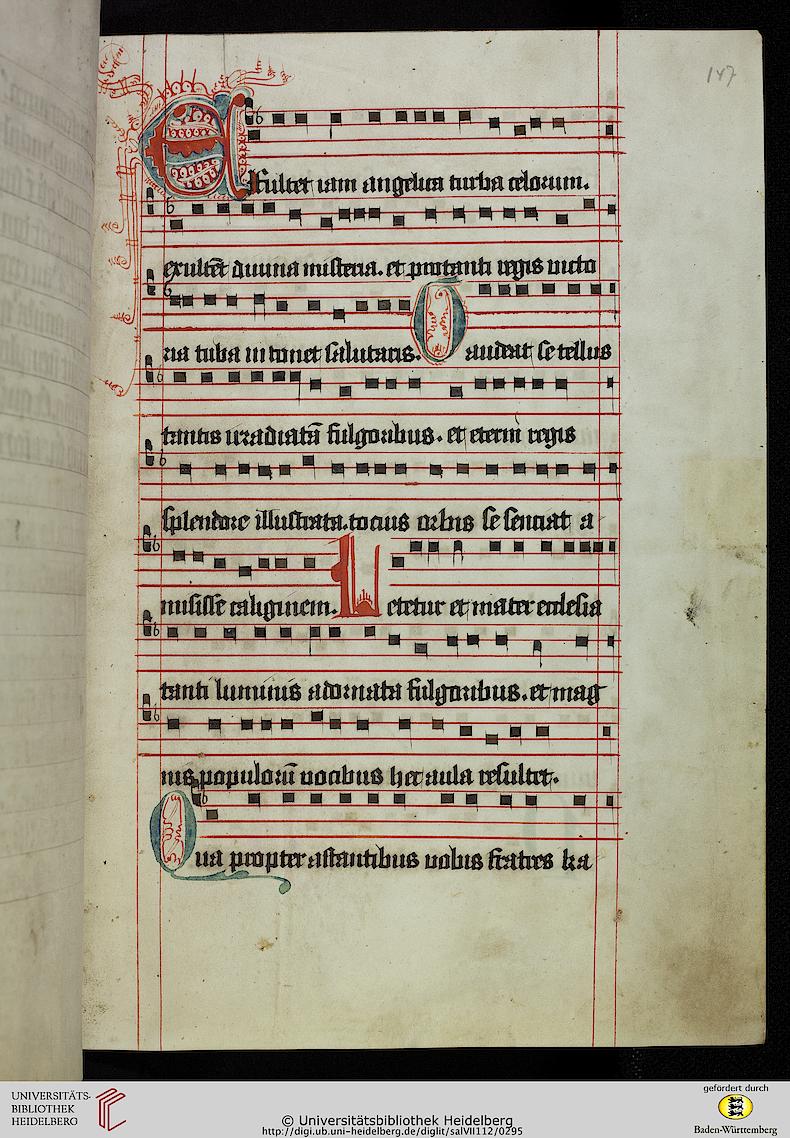 147
EXultet iam angelica turba celorum.
exultēt diuina misteria. et pro tanti regis uicto
ria tuba intonet salutaris. Gaudeat se tellus
tantis irradiatā fulgoribus. et eterni regis
splendore illustrata. tocius orbis se senciat a
misisse caliginem. Letetur et mater ecclesia
tanti luminis adornata fulgoribus. et mag
nis populorū uocibus hec aula resultet.
Qua propter astantibus uobis fratres ka
UNIVERSITÄTS-
BIBLIOTHEK
HEIDELBERG
© Universitätsbibliothek Heidelberg
http://digi.ub.uni-heidelberg.de/diglit/salVII112/0295
gefördert durch
Baden-Württemberg